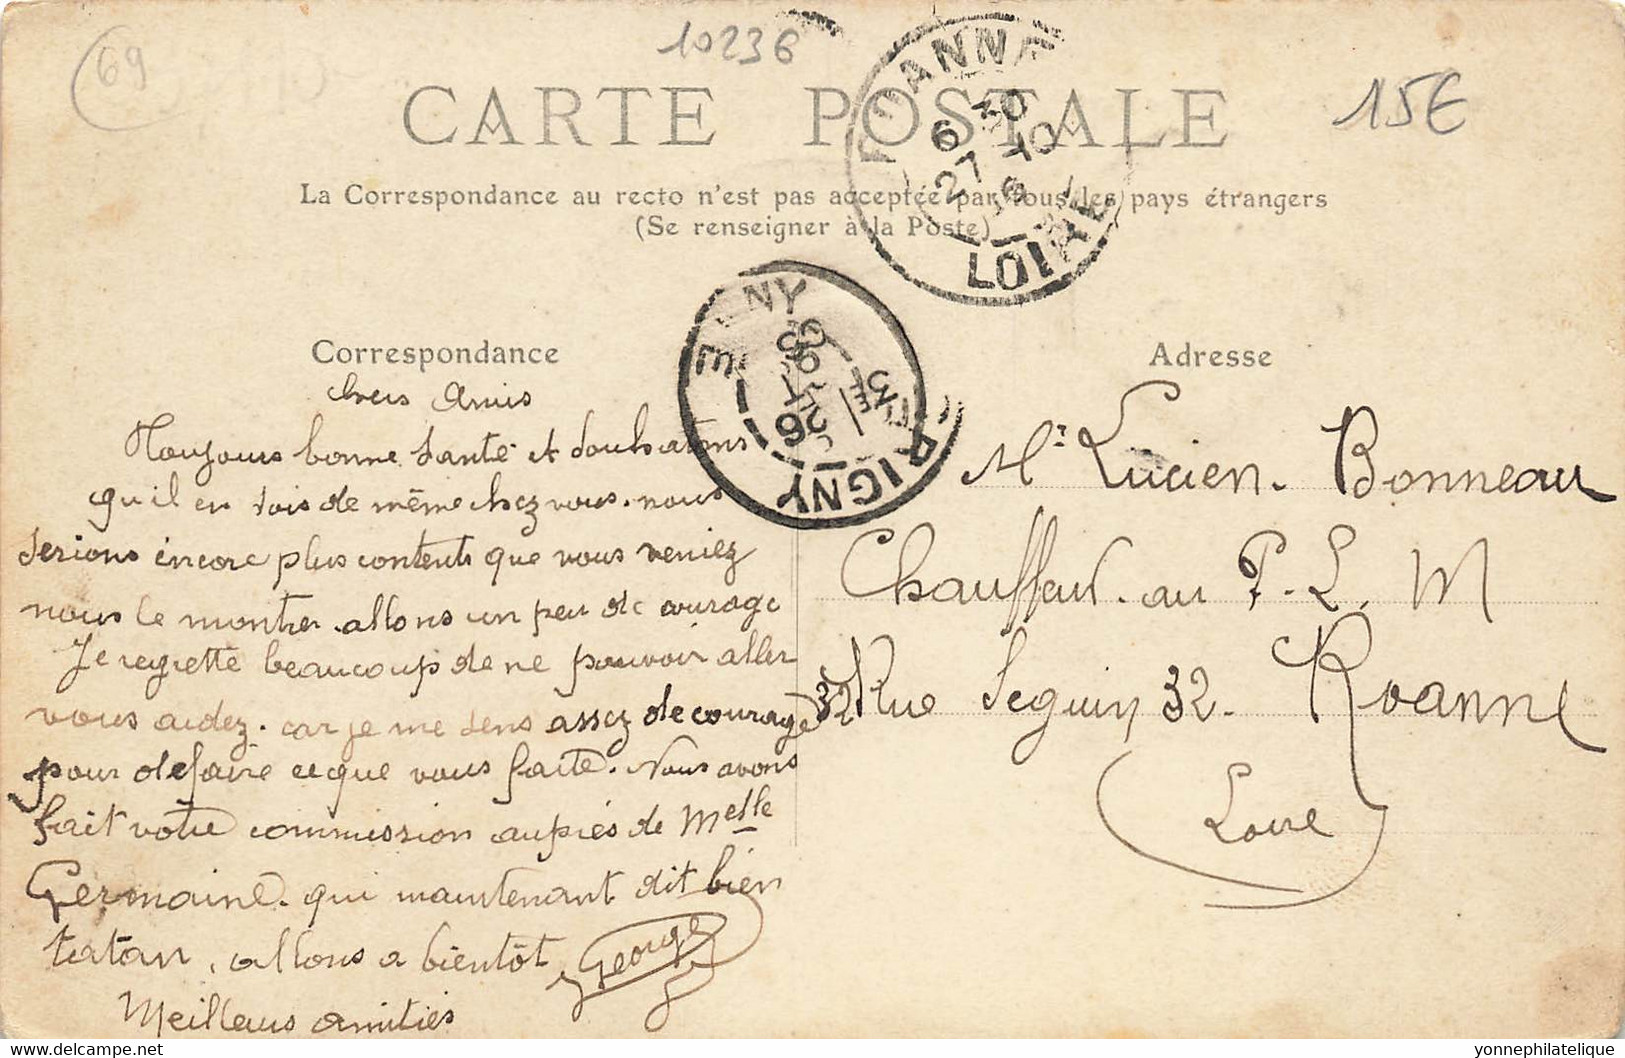 69
10236
15€
CARTE POSTALE
La Correspondance au recto n'est pas acceptée par tous les pays étrangers
(Se renseigner à la Poste)
ROANNE
6 30
27 10
LOIRE
RIGNY
26
Correspondance
Adresse
Chers Amis
Toujours bonne santé et souhaitons
qu'il en sois de même chez vous. nous
serions encore plus contents que vous veniez
nous le montrer. allons un peu de courage
Je regrette beaucoup de ne pouvoir aller
vous aidez. car je me sens assez de courage
pour defaire ce que vous faite. Nous avons
fait votre commission auprés de Melle
Germaine. qui maintenant dit bien
tatan, allons a bientôt
George
Meilleurs amitiés
Mr Lucien. Bonneau
Chauffeur. au P. L. M
32 Rue Seguin 32. Roanne
(Loire)
yonnephilatelique